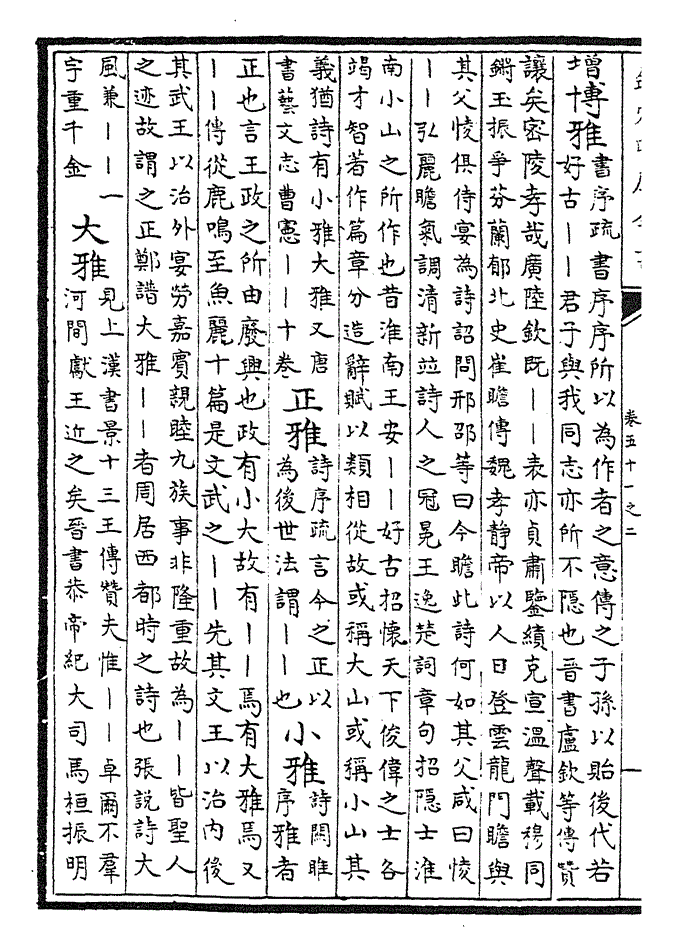 卷五十一之二
一
增博雅
書序疏書序序所以為作者之意傳之子孫以貽後代若
好古丨丨君子與我同志亦所不隱也晉書盧欽等傳贊
讓矣宻陵孝哉廣陸欽既丨丨表亦貞肅鑒績克宣溫聲載穆同
鏘玉振爭芬蘭郁北史崔瞻傳魏孝靜帝以人日登雲龍門瞻與
其父㥄俱侍宴為詩詔問邢邵等曰今瞻此詩何如其父咸曰㥄
丨丨弘麗瞻氣調清新並詩人之冠冕王逸楚詞章句招隱士淮
南小山之所作也昔淮南王安丨丨好古招懷天下俊偉之士各
竭才智著作篇章分造辭賦以類相從故或稱大山或稱小山其
義猶詩有小雅大雅又唐
書藝文志曹憲丨丨十卷
正雅
詩序疏言今之正以
為後世法謂丨丨也
小雅
詩關雎
序雅者
正也言王政之所由廢興也政有小大故有丨丨焉有大雅焉又
丨丨傳從鹿鳴至魚麗十篇是文武之丨丨先其文王以治內後
其武王以治外宴勞嘉賓親睦九族事非隆重故為丨丨皆聖人
之迹故謂之正鄭譜大雅丨丨者周居西都時之詩也張說詩大
風兼丨丨一
字重千金
大雅
見上漢書景十三王傳贊夫惟丨丨卓爾不羣
河間獻王近之矣晉書恭帝紀大司馬桓振明